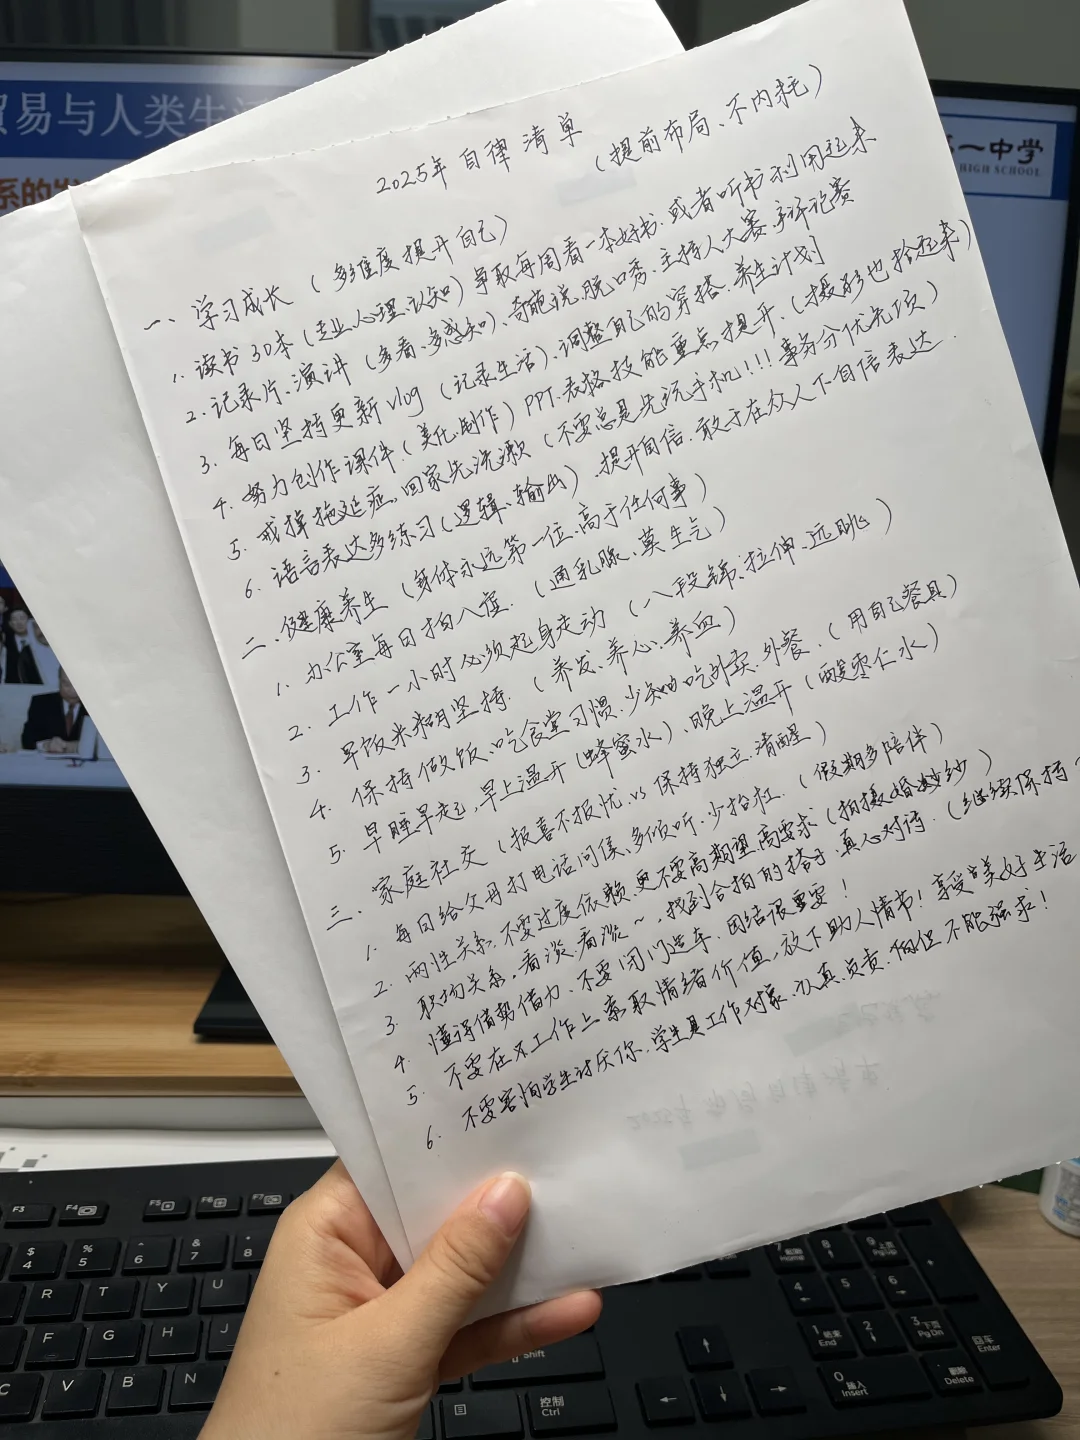 贸易与人类生活
系的发
第一中学
HIGH SCHOOL
2025年 自律 清 单
(提前布局、不内耗)
一、学习成长 (多维度提升自己)
1. 读书30本 (专业、心理、认知) 争取每周看一本好书.或者听书利用起来
2. 记录片、演讲 (多看、多感知)、奇葩说、脱口秀、主持人大赛、辩论赛
3. 每日坚持更新vlog (记录生活)、调整自己的穿搭、养生计划
4. 努力创作课件 (美化.制作) PPT.表格技能重点提升. (摄影也拾起来)
5. 戒掉拖延症, 回家先洗漱 (不要总是先玩手机!!! 事务分优先项)
6. 语言表达多练习 (逻辑、输出)、提升自信.敢于在众人下自信表达.
二、健康养生 (身体永远第一位、高于任何事)
1. 办公室每日拍八虚. (通乳腺、莫生气)
2. 工作一小时必须起身走动 (八段锦、拉伸、远眺)
3. 早饭米糊坚持. (养发、养心、养血)
4. 保持做饭、吃食堂习惯.少知吃外卖.外餐. (用自己餐具)
5. 早睡早起, 早上温开 (蜂蜜水)、晚上温开 (酸枣仁水)
三、家庭社交 (报喜不报忧 vs 保持独立.清醒)
1. 每日给父母打电话问候、多倾听.少抬杠. (假期多陪伴)
2. 两性关系.不要过度依赖.更不要高期望.高要求 (拍摄婚纱)
3. 职场关系, 看淡.看淡~, 找到合拍的搭子.真心对待. (继续保持
4. 懂得借势借力.不要闭门造车.团结很重要!
5. 不要在工作上索取情绪价值, 放下助人情节! 享受美好生活
6. 不要害怕学生讨厌你.学生是工作对象、认真.负责.但不能强求!
F3
F4
F5
F6
F7
$ 4
% 5
^ 6
& 7
* 8
R
T
Y
U
F
G
H
J
C
V
B
N
Shift
控制
Ctrl
7
Home
8
9 上页
PgUp
4
5
6
1 结束
End
2
3 下页
PgDn
回车
Enter
0 插入
Insert
删除
Delete